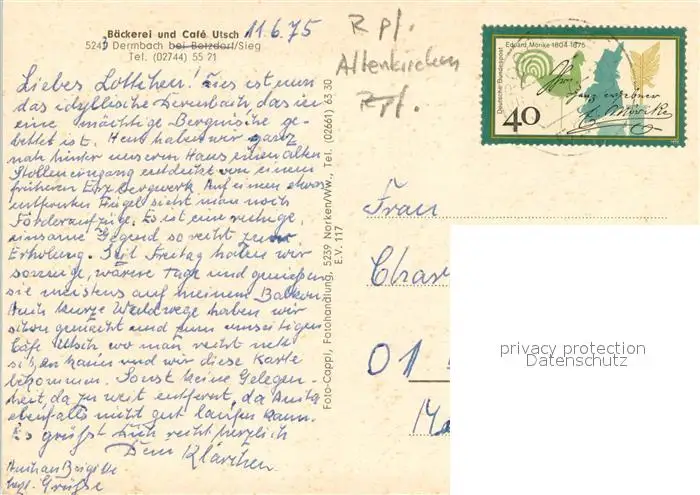 Bäckerei und Café Utsch 11.6.75
5241 Dermbach bei Betzdorf/Sieg
Tel. (02744) 55 71
Liebes Lottchen! Dies ist nun
das idyllische Dermbach, das in
eine mächtige Bergnische ge-
bettet ist. Heut haben wir ganz
nah hinter unserem Haus einen alten
Stolleneingang entdeckt von einem
früheren Erzbergwerk. Auf einem etwas
entfernten Hügel sieht man noch
Förderaufzüge. Es ist eine ruhige
einsame Gegend so recht zur
Erholung. Seit Freitag haben wir
sonnige, wärmere Tage und genießen
sie meistens auf meinem Balkon
Auch kurze Waldwege haben wir
schon gemacht und zum
Café Utsch wo man recht nett
sitzen kann und wir diese Karte
bekommen. Sonst keine Gelegen-
heit, da zu weit entfernt, da Anita
ebenfalls nicht gut laufen kann.
Es grüßt Euch recht herzlich
Dein Klärchen
Brigitte
Grüße
Foto-Cappi, Fotohandlung, 5239 Norken/Ww., Tel. (02661) 63 30
E.V. 117
R pf.
Altenkirchen
Rpf.
Deutsche Bundespost
Eduard Mörike 1804-1875
40
ganz ergebner
E. Mörike
Frau
Char
01
Ma
privacy protection
Datenschutz